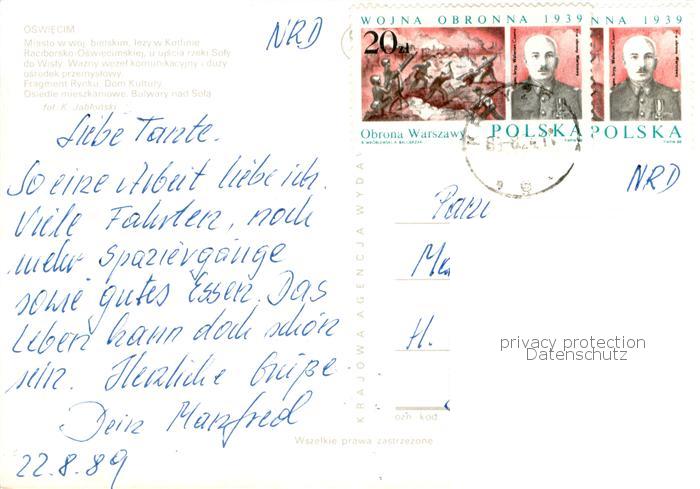 OŚWIĘCIM
Miasto w woj. bielskim, leży w Kotlinie
Raciborsko-Oświęcimskiej, u ujścia rzeki Soły
do Wisły. Ważny węzeł komunikacyjny i duży
ośrodek przemysłowy.
Fragment Rynku, Dom Kultury,
Osiedle mieszkaniowe, Bulwary nad Sołą
fot. K. Jabłoński
NRD
Liebe Tante.
So eine Arbeit liebe ich.
Viele Fahrten, noch
mehr Spaziergänge
sowie gutes Essen. Das
Leben kann doch schön
sein. Herzliche Grüße
Dein Manfred
22.8.89
WOJNA OBRONNA 1939
20 zł
Obrona Warszawy
POLSKA
NA 1939
POLSKA
NRD
Pani
H.
KRAJOWA AGENCJA WYDA
kod
Wszelkie prawa zastrzeżone
privacy protection
Datenschutz